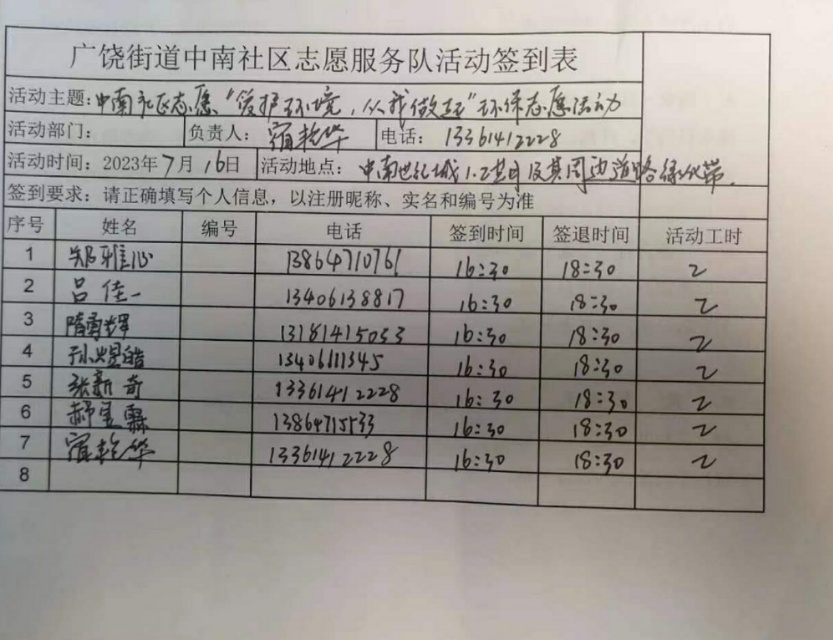 广饶街道中南社区志愿服务队活动签到表
活动主题：中南社区志愿"爱护环境，从我做起"环保志愿活动
活动部门： 负责人：宿乾华 电话：13361412228
活动时间：2023年7月16日 活动地点：中南世纪城1.2期及其周边道路绿化带.
签到要求：请正确填写个人信息，以注册昵称、实名和编号为准
序号 姓名 编号 电话 签到时间 签退时间 活动工时
1 郑雅心 13864710761 16:30 18:30 2
2 吕佳一 13406138817 16:30 18:30 2
3 隋勇辉 13181415053 16:30 18:30 2
4 孙煜皓 13406111345 16:30 18:30 2
5 张新奇 13361412228 16:30 18:30 2
6 郝昱霖 13864715533 16:30 18:30 2
7 宿乾华 13361412228 16:30 18:30 2
8